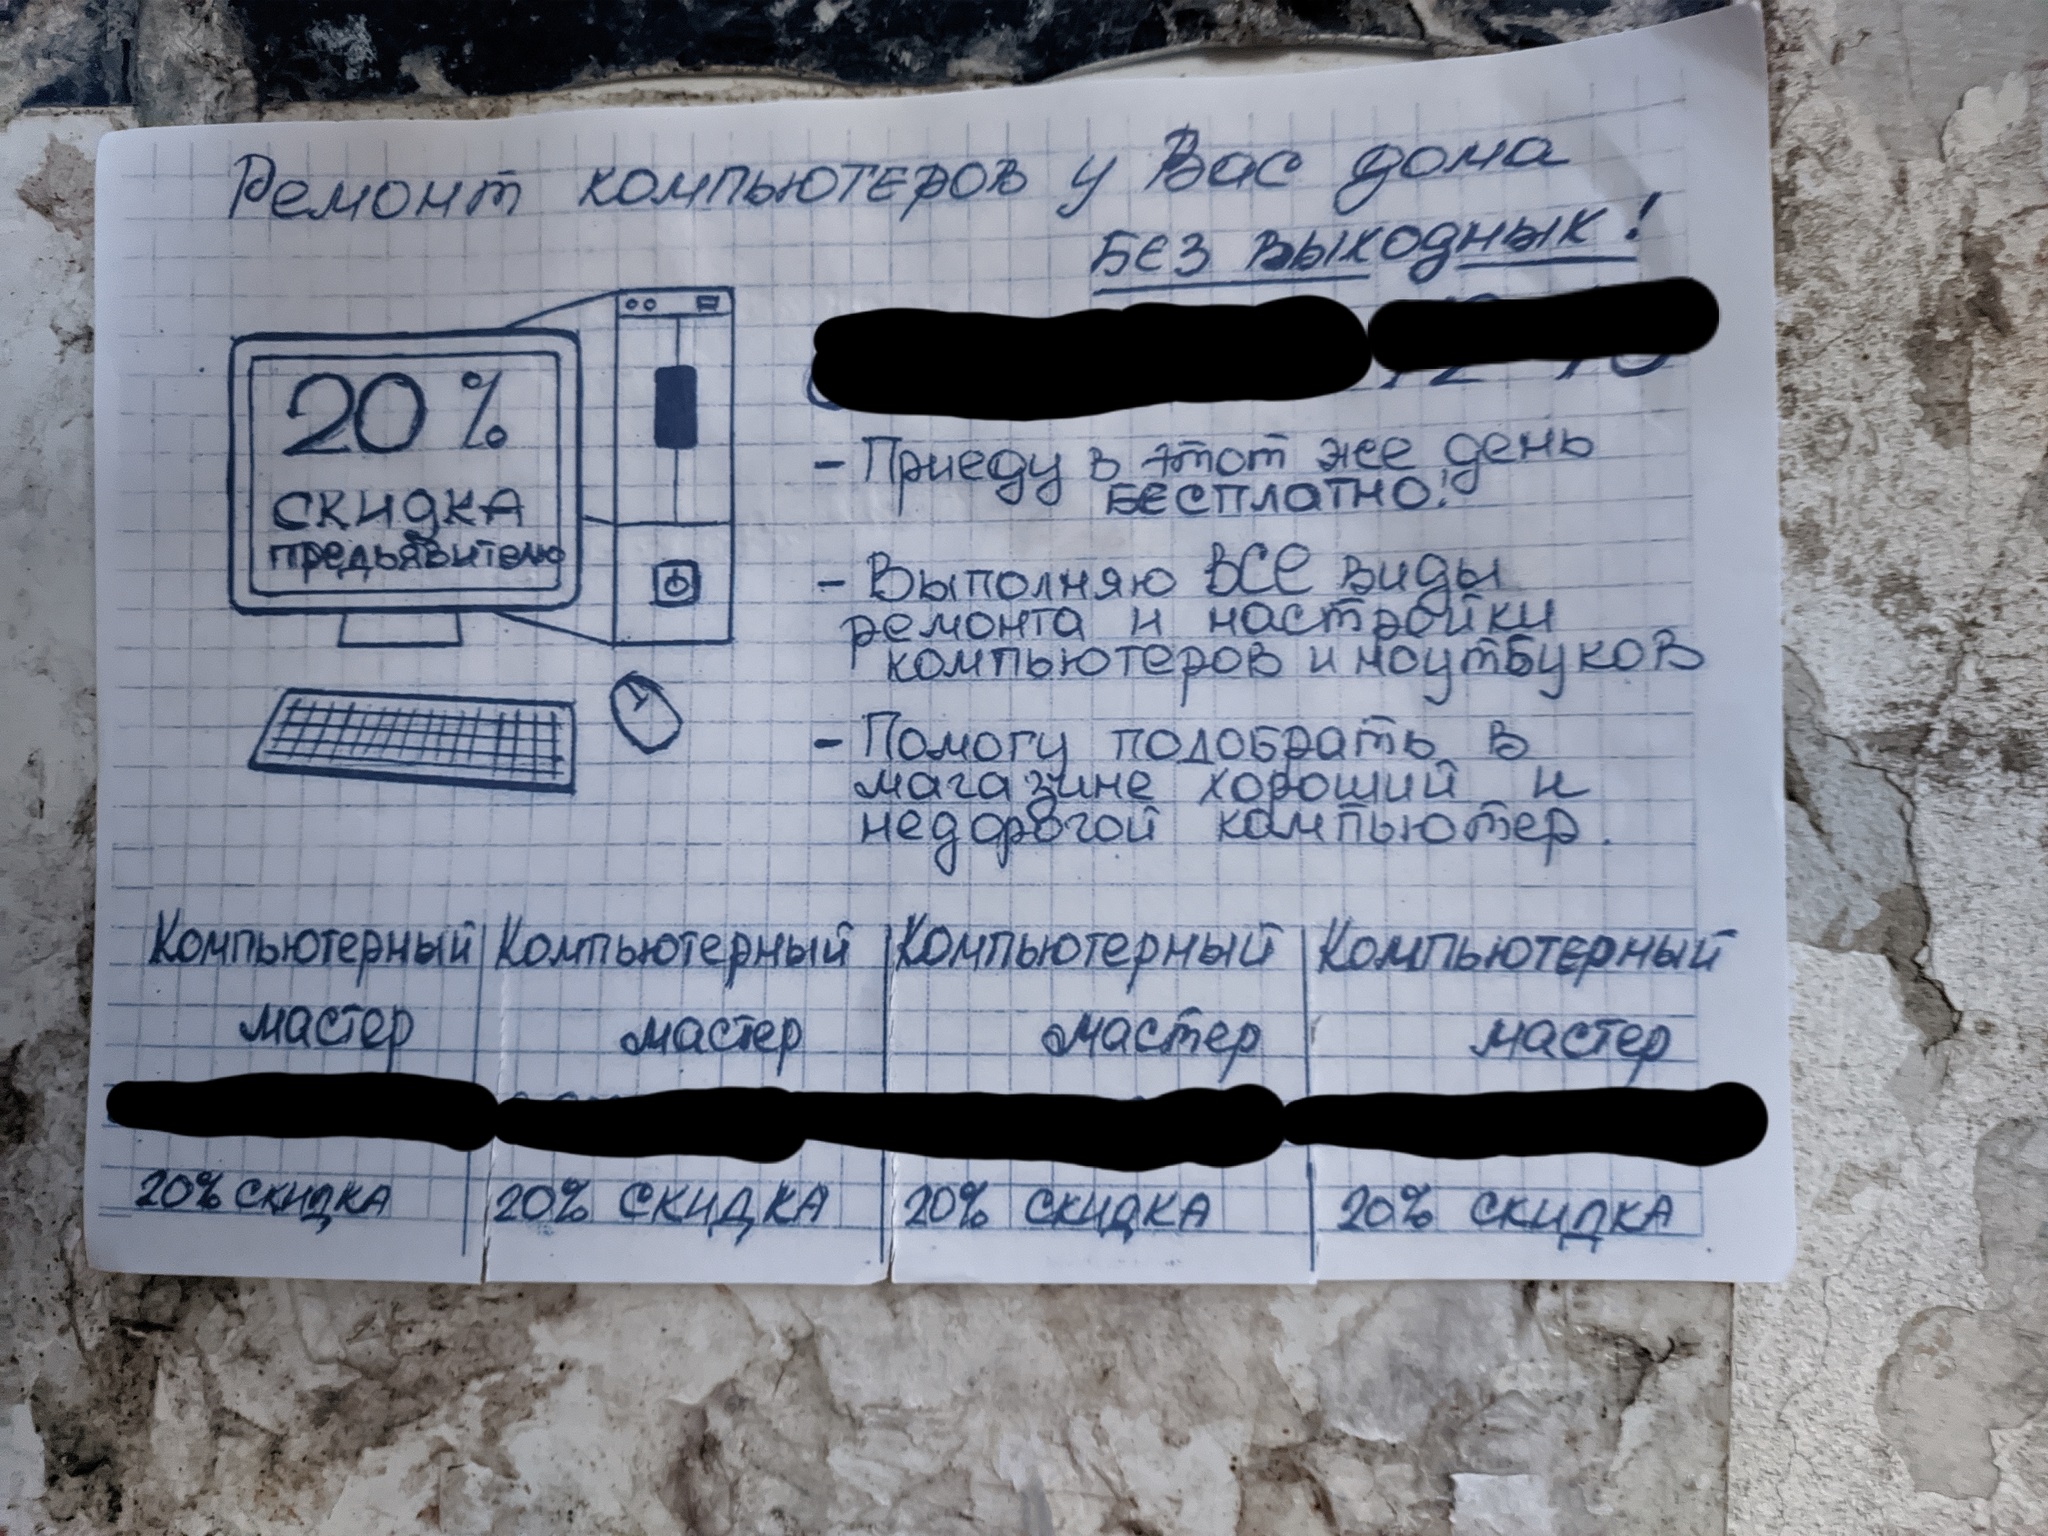 Ремонт компьютеров у Вас дома
БЕЗ ВЫХОДНЫХ!
20%
СКИДКА
предьявителю
- Приеду в этот же день
БЕСПЛАТНО!
- Выполняю ВСЕ виды
ремонта и настройки
компьютеров и ноутбуков
- Помогу подобрать в
магазине хороший и
недорогой компьютер.
Компьютерный
мастер
20% СКИДКА
Компьютерный
мастер
20% СКИДКА
Компьютерный
мастер
20% СКИДКА
Компьютерный
мастер
20% СКИДКА